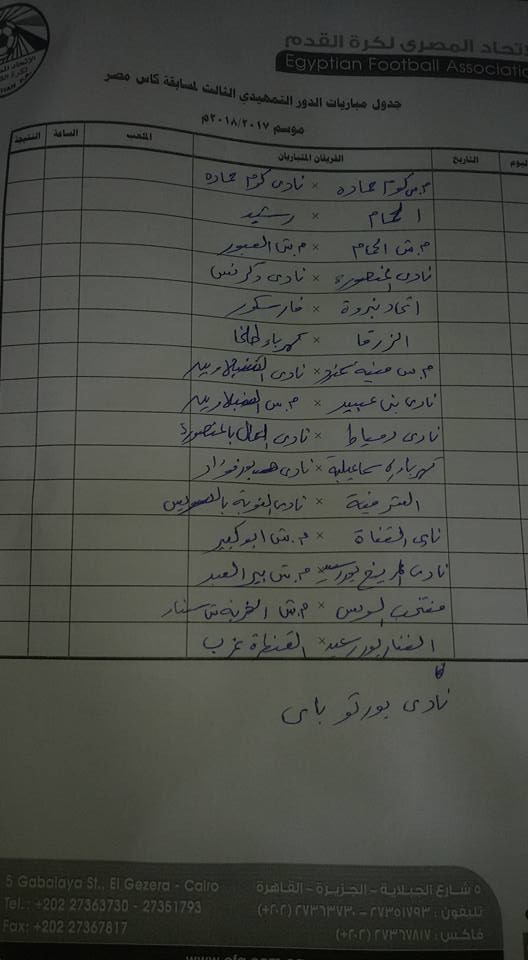 الاتحاد المصرى لكرة القدم
Egyptian Football Association
جدول مباريات الدور التمهيدي الثالث لمسابقة كاس مصر
موسم ٢٠١٨/٢٠١٧م
اليوم التاريخ الفريقان المتباريان الملعب الساعة النتيجة
م.ش كوم حماده × نادى كوم حماده
الحمام × رشيد
م.ش الحمام × م.ش العبور
نادى المنصورة × نادى دكرنس
اتحاد نبروة × فارسكور
الزرقا × كهرباء طلخا
م.ش منية سمنود × نادى السنبلاوين
نادى بنى عبيد × م.ش السنبلاوين
نادى دمياط × نادى الحال بالمنصورة
كهرباء الاسماعيلية × نادى بورفؤاد
الشرقية × نادى بالسويس
نادى القناة × م.ش ابو كبير
نادى المريخ بورسعيد × م.ش بير العبد
منتخب السويس × م.ش
الفنار بورسعيد × القنطرة غرب
نادى بورتو باى
5 Gabalaya St., El Gezera - Cairo
Tel.: +202 27363730 - 27351793
Fax: +202 27367817
٥ شارع الجبلاية - الجزيرة - القاهرة
تليفون: ٢٧٣٥١٧٩٣ - ٢٧٣٦٣٧٣٠ (٢٠٢+)
فاكس: ٢٧٣٦٧٨١٧ (٢٠٢+)